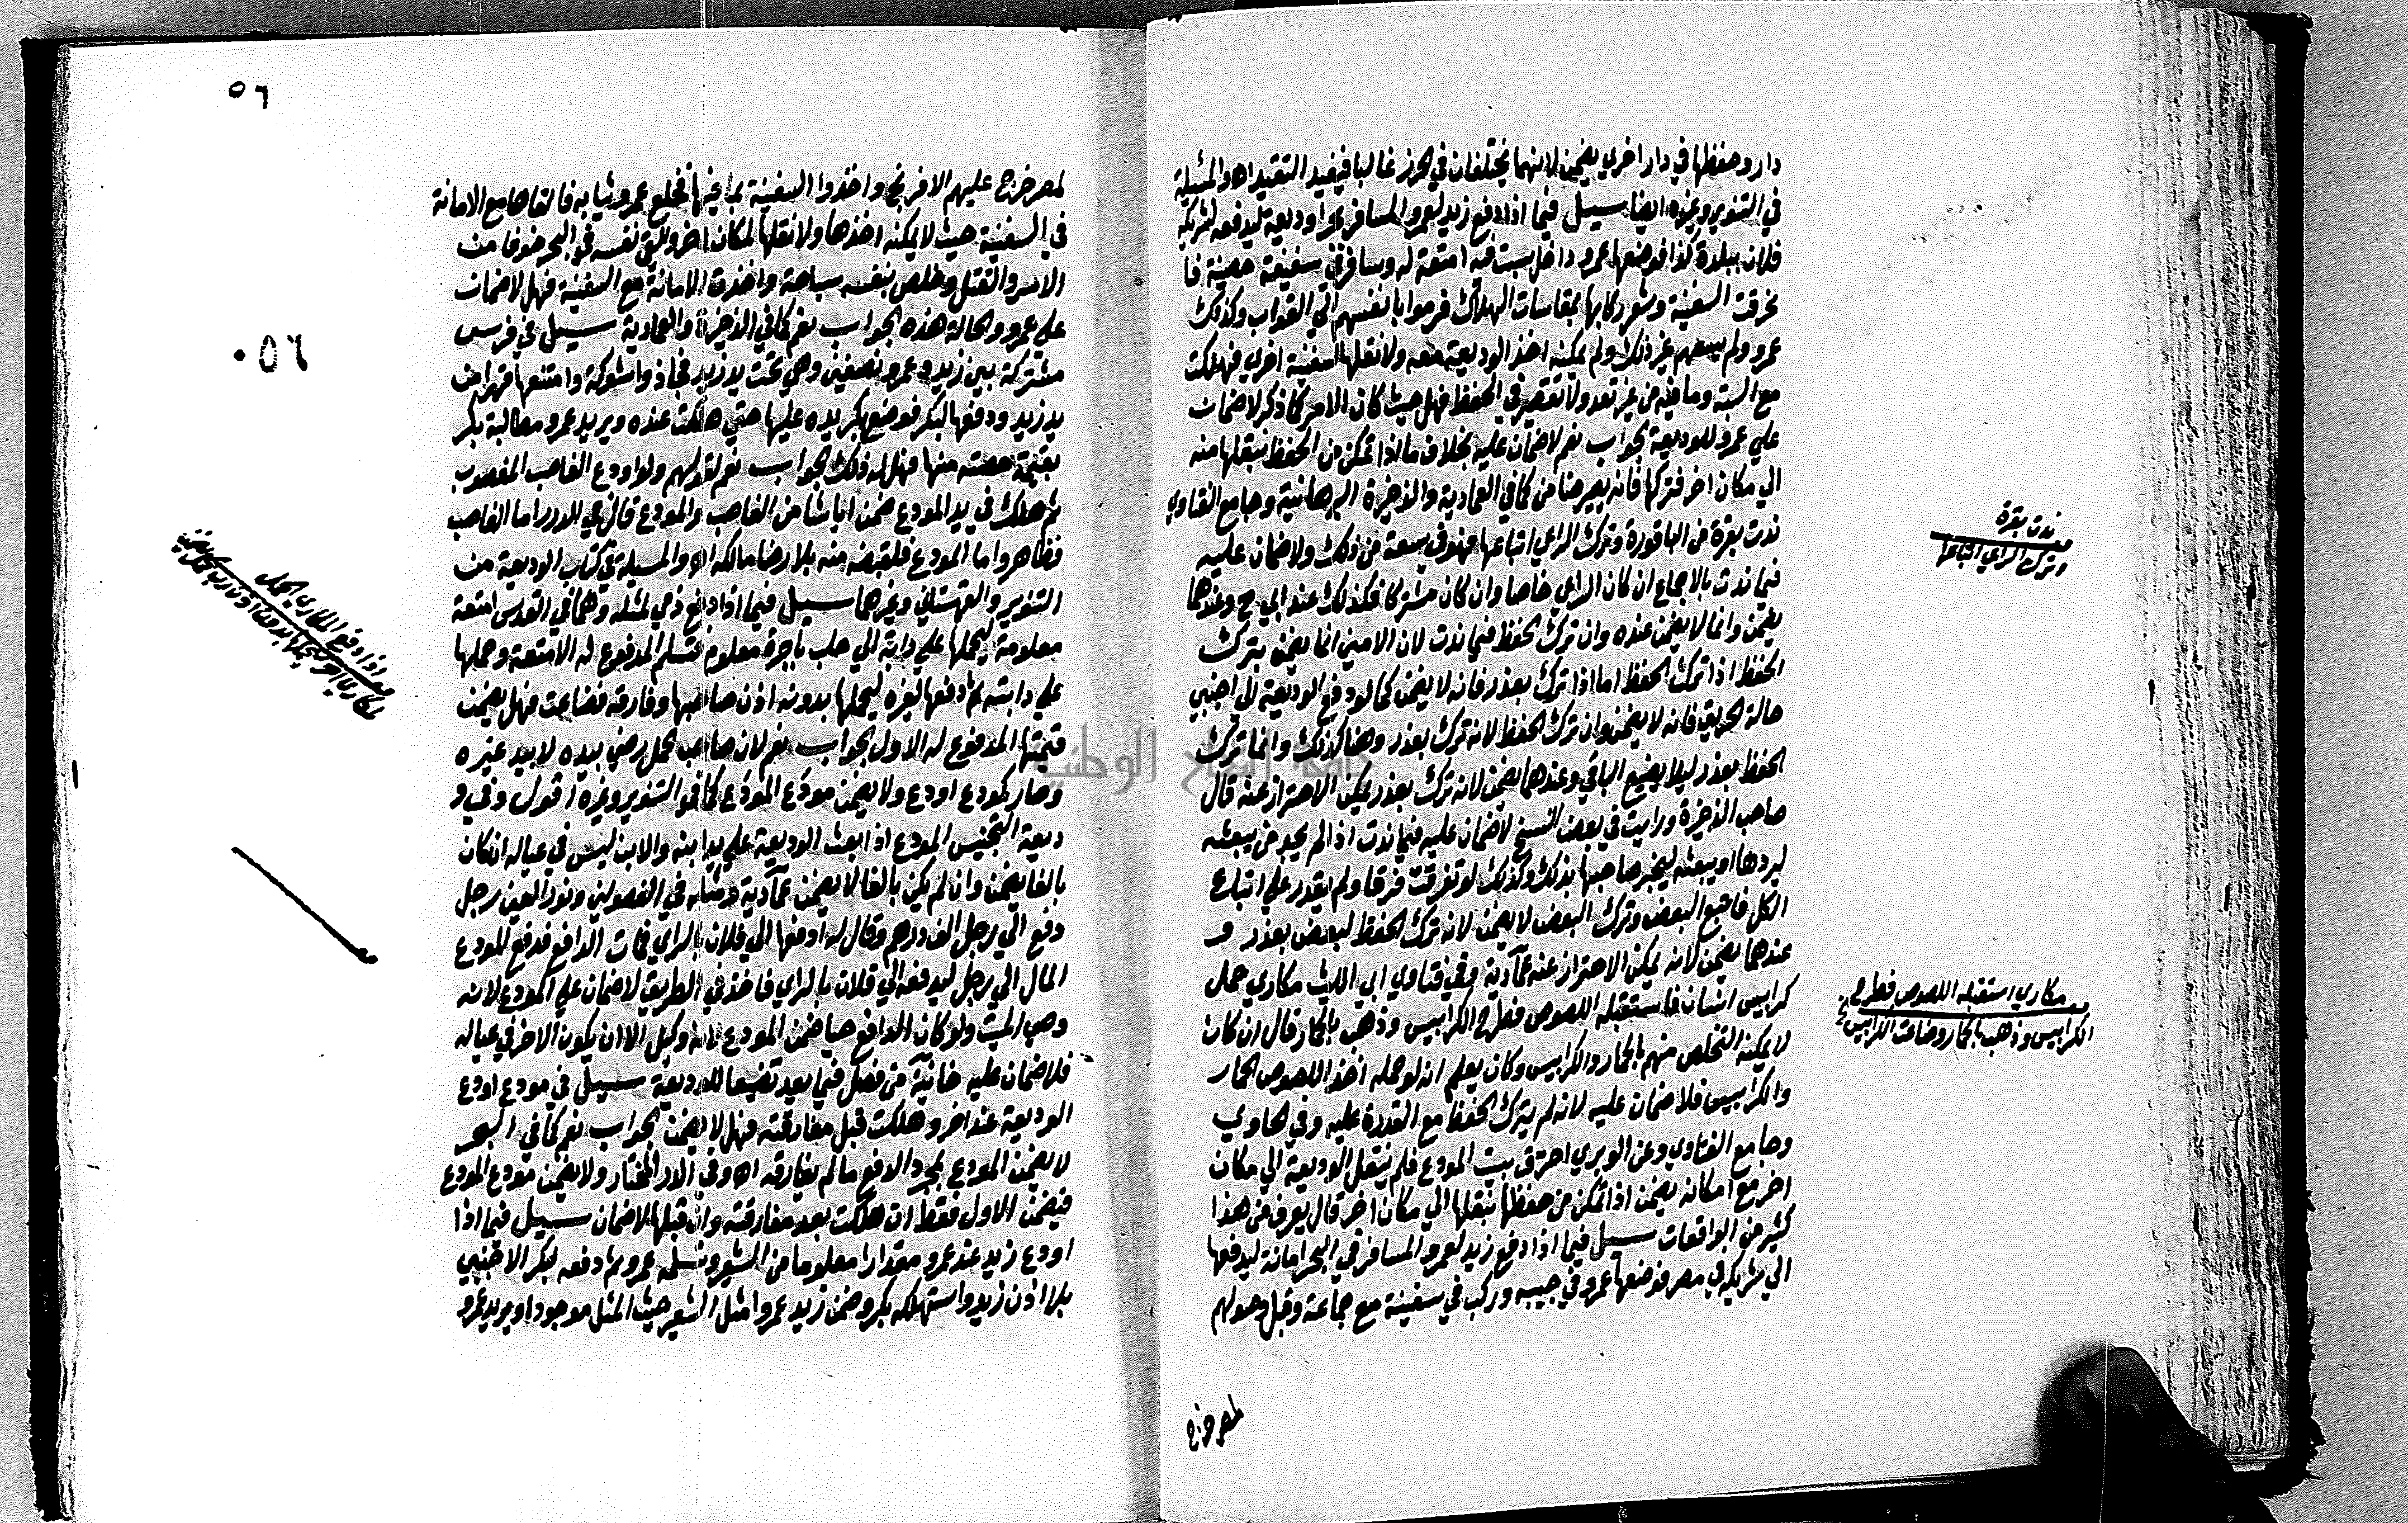 دار وحفظها في دار اخري يضمن لانهما يختلفان في الحرز غالبا فيفيد التقييد اه والمسئلة
في التنوير وغيره ايضا سئل فيما اذا دفع زيد لعمرو المسافر بحرا وديعة ليدفعه لشريكه
فلان ببلدة كذا فوضعها عمرو داخل سبت فيه امتعة له وسافر في سفينة حصينة فا
نخرقت السفينة وشعر ركابها بمقاسات الهلاك فرموا بانفسهم الي القوارب وكذلك
عمرو ولم يسعهم غير ذلك ولم يمكنه اخذ الوديعة معه ولا نقلها لسفينة اخري فهلكت
مع السبت وما فيه من غير تعد ولا تقصير في الحفظ فهل حيث كان الامر كما ذكر لا ضمان
علي عمرو للوديعة الجواب نعم لا ضمان عليه بخلاف ما اذا تمكن من الحفظ بنقلها منه
الي مكان اخر فتركها فانه يصير ضامن كما في العمادية والذخيرة البرهانية وجامع الفتاوي
ندت بقرة من الباقورة وترك الراعي اتباعها فهو في سعة من ذلك ولا ضمان عليه
فيما ندت بالاجماع ان كان الراعي خاصا وان كان مشتركا فكذلك عند ابي ح وعندهما
يضمن وانما لا يضمن عنده وان ترك الحفظ فيما ندت لان الامين انما يضمن بترك
الحفظ اذا ترك الحفظ اما اذا ترك بعذر فانه لا يضمن كما لو دفع الوديعة الي اجنبي
حالة الحريق فانه لا يضمن وان ترك الحفظ لانه ترك بعذر وهنا كذلك وانما ترك
الحفظ بعذر ليلا يضيع الباقي وعندهما يضمن لانه ترك بعذر يمكن الاحتراز عنه قال
صاحب الذخيرة ورايت في بعض النسخ لا ضمان عليه فيما ندت اذا لم يجد من يبعثه
ليردها او يبعثه ليخبر صاحبها بذلك وكذلك لو تفرقت فرقا ولم يقدر علي اتباع
الكل فاتبع البعض وترك البعض لا يضمن لانه ترك الحفظ لبعض بعذر و
عندهما يضمن لانه يمكن الاحتراز عنه عمادية وفي فتاوي ابي الليث مكاري حمل
كرابيس انسان فاستقبله اللصوص فطرح الكرابيس وذهب بالحمار قال ان كان
لا يمكنه التخلص منهم بالحمار والكرابيس وكان يعلم انه لو حمله اخذ اللصوص الحمار
والكرابيس فلا ضمان عليه لانه لم يترك الحفظ مع القدرة عليه وفي الحاوي
وجامع الفتاوي وعن الوبري احترق بيت المودع فلم ينقل الوديعة الي مكان
اخر مع امكانه يضمن اذا تمكن من حفظها بنقلها الي مكان اخر قال يعرف من هذا
كثير من الواقعات سئل فيما اذا دفع زيد لعمرو المسافر في البحر امانة ليدفعها
الي شريكه في مصر فوضعها عمرو في جيبه وركب في سفينة مع جماعة وقبل وصولهم
لمصر خرج
ندت بقرة
وترك الراعي اتباعها
مكاري استقبله اللصوص فطرح
الكرابيس وذهب بالحمار وضاعت الكرابيس
٥٦
لمصر خرج عليهم الافرنج واخذوا السفينة بما فيها فخلع عمرو ثيابه فالقاها مع الامانة
في السفينة حيث لا يمكنه اخذها ولا نقلها لمكان اخر والقي نفسه في البحر خوفا من
الاسر والقتل وخلص بنفسه سباحة واخذت الامانة مع السفينة فهل لا ضمان
علي عمرو والحالة هذه الجواب نعم كما في الذخيرة والعمادية سئل في فرس
مشتركة بين زيد وعمرو نصفين وهي تحت يد زيد فجاء ذوا شوكة وانتزعها قهرا من
يد زيد ودفعها لبكر فوضع بكر يده عليها حتي هلكت عنده ويريد عمرو مطالبة بكر
بقيمة حصته منها فهل له ذلك الجواب نعم لقولهم ولو اودع الغاصب المغصوب
ثم هلك في يد المودع ضمن ايا شا من الغاصب والمودع قال في الدرر اما الغاصب
فظاهر واما المودع فلقبضه منه بلا رضا مالكه اه والمسئلة في كتاب الوديعة من
التنوير والقهستاني وغيرهما سئل فيما اذا دفع ذمي لمثله وهما في القدس امتعة
معلومة ليحملها علي دابته الي حلب باجرة معلومة فتسلم المدفوع له الامتعة وحملها
علي دابته ثم دفعها لغيره ليحملها بدون اذن صاحبها وفارقه فضاعت فهل يضمن
قيمتها المدفوع له الاول الجواب نعم لان صاحب الحمل رضي بيده لا بيد غيره
وصار كمودع اودع ولا يضمن مودع المودع كما في التنوير وغيره اقول وفي و
ديعة التجنيس المودع اذا بعث الوديعة علي يد ابنه والابن ليس في عياله ان كان
بالغا يضمن وان لم يكن بالغا لا يضمن عمادية ومثله في الفصولين ونور العين رجل
دفع الي رجل الف درهم وقال له ادفعها الي فلان بالري فمات الدافع فدفع المودع
المال الي رجل ليدفعه الي فلان بالري فاخذ في الطريق لا ضمان علي المودع لانه
وصي الميت ولو كان الدافع حيا ضمن المودع لانه وكيل الا ان يكون الاخر في عياله
فلا ضمان عليه خانية من فصل فيما يعد تضييعا للوديعة سئل في مودع اودع
الوديعة عند اخر وهلكت قبل مفارقته فهل لا يضمن الجواب نعم كما في البحر
لا يضمن المودع بمجرد الدفع ما لم يفارقه اه وفي الدر المختار ولا يضمن مودع المودع
فيضمن الاول فقط ان هلكت بعد مفارقته وان قبلها لا ضمان سئل فيما اذا
اودع زيد عند عمرو مقدارا معلوما من الشعير وتسلمه عمرو ثم دفعه لبكر الاجنبي
بلا اذن زيد واستهلكه بكر وضمن زيد عمروا مثل الشعير حيث المثل موجودا ويريد عمرو
٠٥٦
اذا دفع المكاري الحمل
جامعة النجاح الوطنية